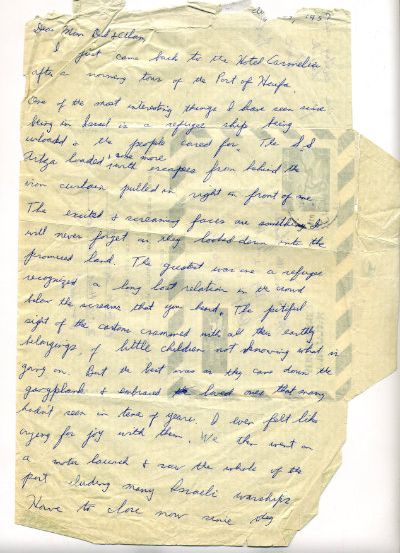 1957
Dear Mom Dad & Adam,
I just came back to the Hotel Carmelia
after a morning tour of the Port of Haifa.
One of the most interesting things I have seen since
being in Israel is a refugee ship being
unloaded & the people cared for. The S.S
Artza loaded with some more escapees from behind the
iron curtain pulled in right in front of me
The excited & screaming faces are something I
will never forget as they looked down onto the
promised land. The greatest was one a refugee
recognized a long lost relation in the crowd
below the screams that you heard. The pitiful
sight of the cartons crammed with all their earthly
belongings, of little children not knowing what is
going on. But the best was as they came down the
gangplank & embraced loved ones that many
hadn't seen in tens of years. I even felt like
crying for joy with them. We then went on
a motor launch & saw the whole of the
port including many Israeli warships
Have to close now since